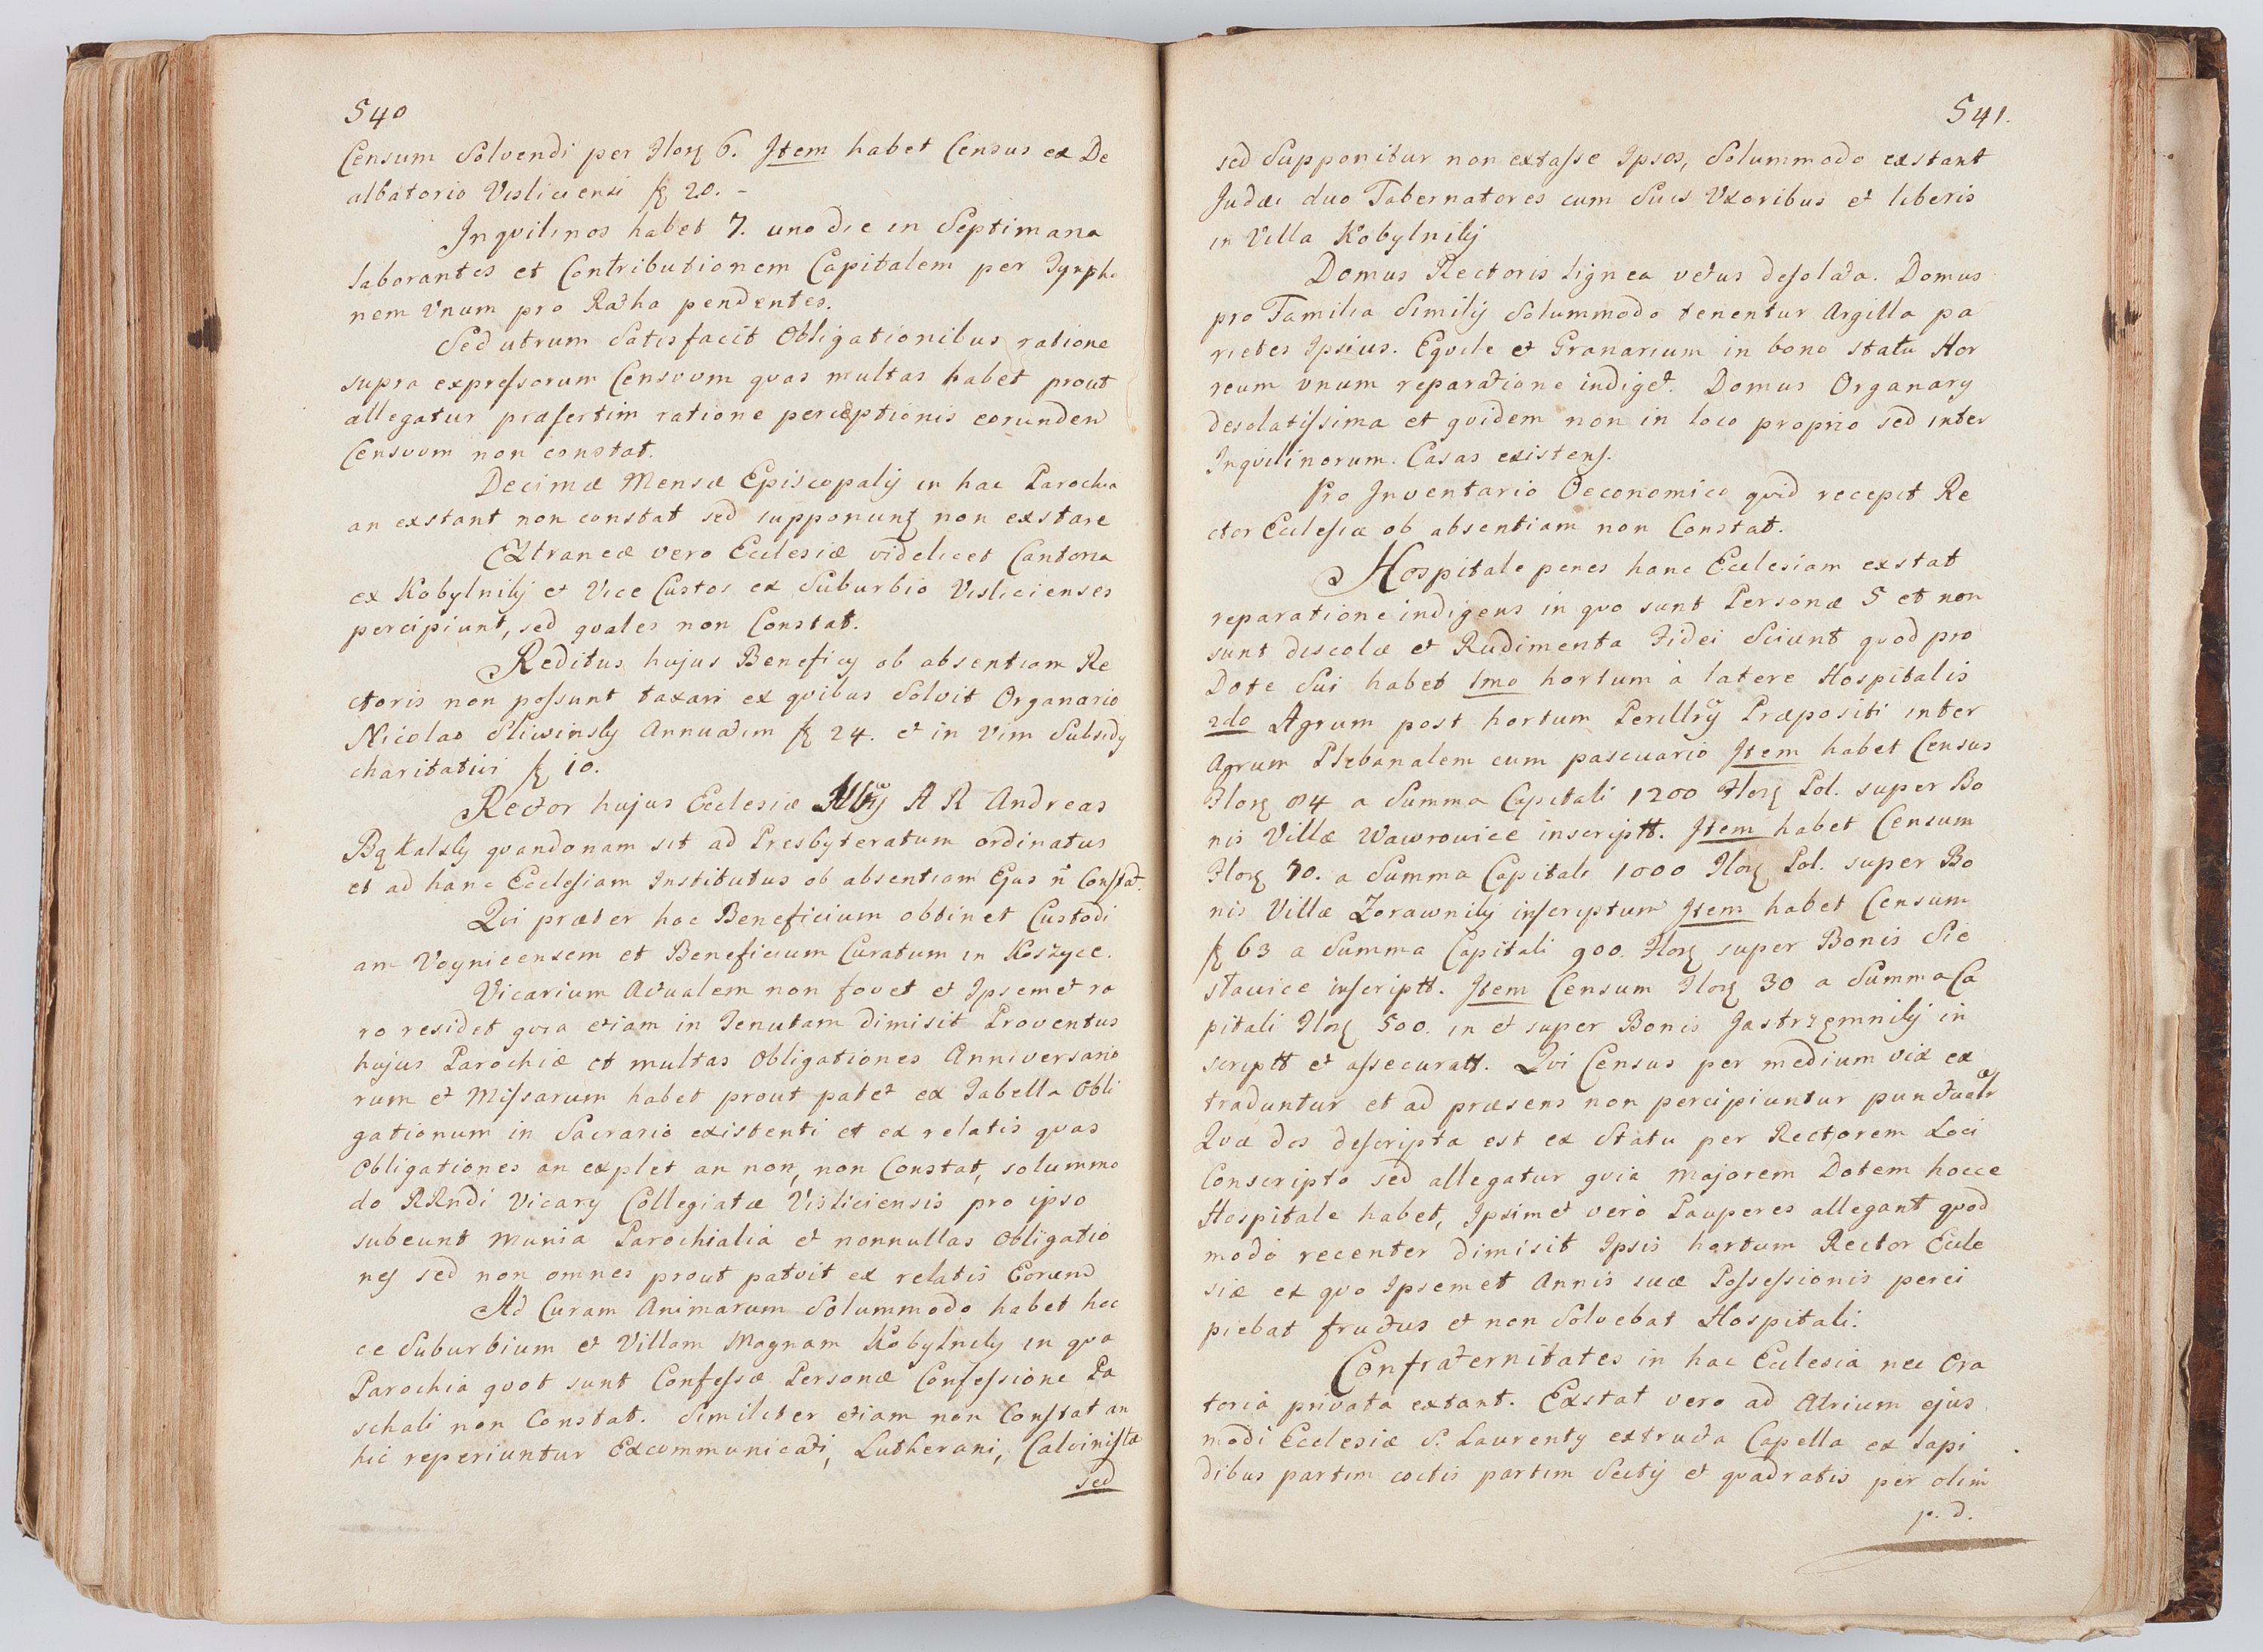 540
Censum Solvendi per Flor 6. Item habet Census ex De
albatorio Visliciensi fl 20. -
Inqvilinos habet 7. uno die in Septimana
laborantes et Contributionem Capitalem per Tympho
nem Vnum pro Ratha pendentes.
Sed utrum Satisfacit Obligationibus ratione
supra expressorum Censuum quas multas habet prout
allegatur præsertim ratione perceptionis eorunden
Censuum non constat.
Decimæ Mensæ Episcopalij in hac Parochia
an exstant non constat sed supponunt non exstare
Extraneæ vero Ecclesiæ videlicet Cantoria
ex Kobylnikij et Vice Custos ex Suburbio Vislicienses
percipiunt, sed qvales non Constat.
Reditus hujus Beneficij ob absentiam Re
ctoris non possunt taxari ex qvibus Solvit Organario
Nicolao Sliwinsky Annuatim fl 24. et in vim Subsidij
charitativi fl 10.
Rector hujus Ecclesiæ A R Andreas
Bąkalsky qvandonam sit ad Presbyteratum ordinatus
et ad hanc Ecclesiam Institutus ob absentiam Ejus ñ Constat.
Qvi præter hoc Beneficium obtinet Custodi
am Voyniceensem et Beneficium Curatum in Koszyce.
Vicarium Actualem non fovet et Ipsemet ra
ro residet qvia etiam in Tenutam dimisit Proventus
hujus Parochiæ et multas Obligationes Anniversario
rum et Missarum habet prout patet ex Tabella Obli
gationum in Sacrario existenti et ex relatis qvas
Obligationes an explet an non, non Constat, solummo
do RRndi Vicary Collegiatæ Visliciensis pro ipso
subeunt Munia Parochialia et nonnullas Obligatio
nes sed non omnes prout patvit ex relatis Eorund
Ad Curam Animarum Solummodo habet hoc
ce Suburbium et Villam Magnam Kobylniky in qva
Parochia qvot sunt Confessæ Personæ Confessione Pa
schali non Constat. Similiter etiam non Constat an
hic reperiuntur Excommunicati, Lutherani, Calvinistæ
sed
541.
sed Supponitur non extasse Ipsos, Solummodo exstant
Judæi duo Tabernatores cum Suis Vxoribus et liberis
in Villa Kobylnikij
Domus Rectoris lignea vetus desolata. Domus
pro Familia Similij Solummodo tenentur Argilla pa
rietes Ipsius. Eqvile et Granarium in bono statu Hor
reum vnum reparatione indiget. Domus Organary
desolatissima et qvidem non in loco proprio sed inter
Inqvilinorum. Casas existens.
Pro Inventario Oeconomico qvid recepit Re
ctor Ecclesiæ ob absentiam non Constat.
Hospitale penes hanc Ecclesiam exstat
reparatione indigens in qvo sunt Personæ 5 et non
sunt discolæ et Rudimenta Fidei Sciunt qvod pro
Dote Sui habet 1mo hortum à latere Hospitalis
2do Agrum post hortum Perillrij Præpositi inter
Agrum Plebanalem cum pascuario Item habet Census
Flor 84 a Summa Capitali 1200 Flor Pol. super Bo
nis Villæ Wawrowice inscriptt. Item habet Censum
Flor 70. a Summa Capitali 1000 Flor Pol. super Bo
nis Villæ Zorawnikij inscriptum Item habet Censum
fl 63 a Summa Capitali 900. Flor super Bonis Sie
stawice inscriptt. Item Censum Flor 30 a Summa Ca
pitali Flor 500. in et super Bonis Jastrzęmnikij in
scriptt et assecuratt. Qvi Census per medium vix ex
traduntur et ad præsens non percipiuntur punctualr
Qvæ dos descripta est ex Statu per Rectorem Loci
Conscripto sed allegatur qvia majorem Dotem hocce
Hospitale habet, Ipsimet verò Pauperes allegant qvod
modò recenter dimisit Ipsis hortum Rector Eccle
siæ ex qvo Ipsemet Annis suæ Possessionis perci
piebat fructus et non Solvebat Hospitali.
Confraternitates in hac Ecclesia nec Ora
toria privata extant. Exstat vero ad Atrium ejus
modi Ecclesiæ S. Laurenty extructa Capella ex lapi
dibus partim coctis partim Sectij et qvadratis per olim
p. d.